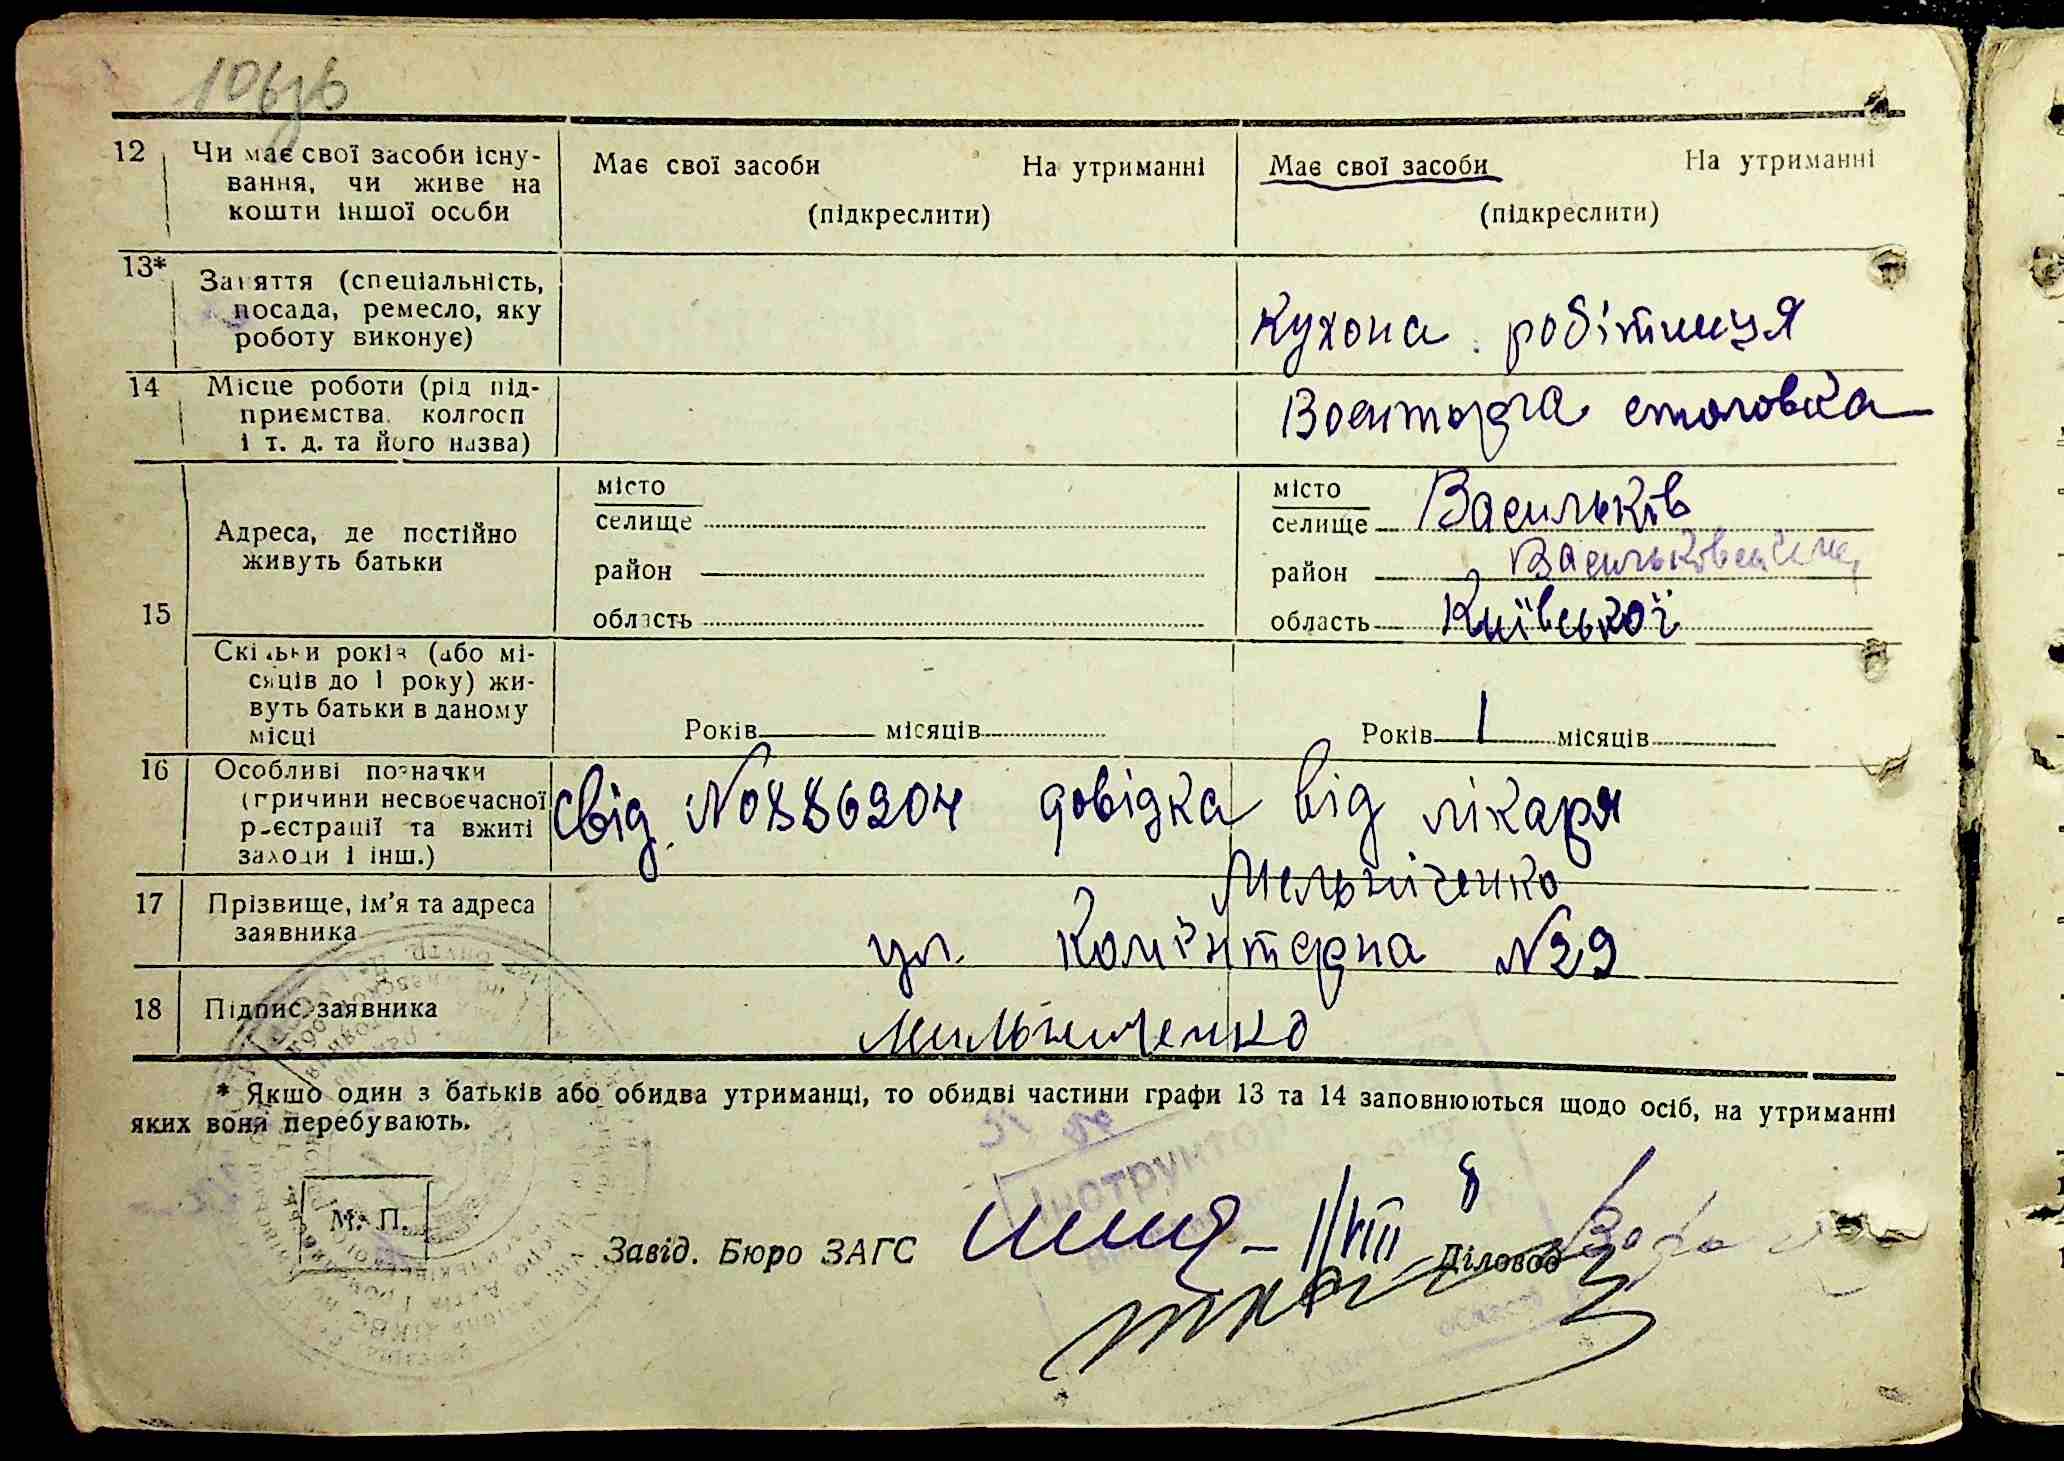 106зв
12 Чи має свої засоби існу-
вання, чи живе на
кошти іншої особи
Має свої засоби На утриманні
(підкреслити)
Має свої засоби На утриманні
(підкреслити)
13* Заняття (спеціальність,
посада, ремесло, яку
роботу виконує)
Кухона робітниця
14 Місце роботи (рід під-
приємства, колгосп
і т. д. та його назва)
Воєнторга столовка
15
Адреса, де постійно
живуть батьки
місто
селище
район
область
місто
селище Васильків
район
область Київської
Скільки років (або мі-
сяців до 1 року) жи-
вуть батьки в даному
місці
Років місяців
Років 1 місяців
16 Особливі позначки
(причини несвоєчасної
реєстрації та вжиті
заходи і інш.)
свід. №0886204 довідка від лікаря
17 Прізвище, ім'я та адреса
заявника
Мельніченко
ул. Комінтерна №29
18 Підпис заявника
Мильниченко
* Якщо один з батьків або обидва утриманці, то обидві частини графи 13 та 14 заповнюються щодо осіб, на утриманні
яких вони перебувають.
М. П.
Інструктор
Завід. Бюро ЗАГС
Діловод